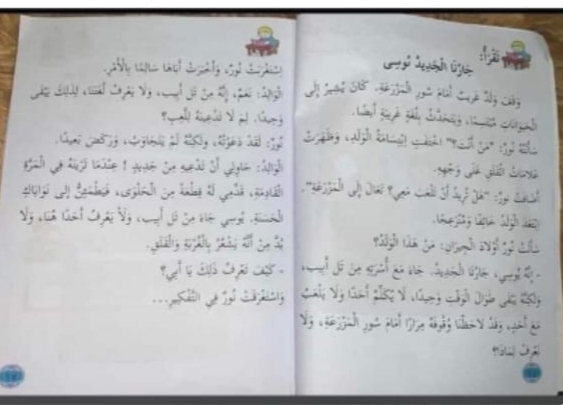 نَقْرَأُ:
جَارُنَا الْجَدِيدُ يُوسِي
وَقَفَ وَلَدٌ غَرِيبٌ أَمَامَ سُورِ الْمَزْرَعَةِ. كَانَ يُشِيرُ إِلَى
الْحَيَوَانَاتِ مُبْتَسِمًا، وَيَتَحَدَّثُ بِلُغَةٍ غَرِيبَةٍ أَيْضًا.
سَأَلَتْهُ نُورُ: "مَنْ أَنْتَ؟" اخْتَفَتِ ابْتِسَامَةُ الْوَلَدِ، وَظَهَرَتْ
عَلَامَاتُ الْقَلَقِ عَلَى وَجْهِهِ.
أَضَافَتْ نُورُ: "هَلْ تُرِيدُ أَنْ تَلْعَبَ مَعِي؟ تَعَالَ إِلَى الْمَزْرَعَةِ".
ابْتَعَدَ الْوَلَدُ خَائِفًا وَمُنْزَعِجًا.
سَأَلَتْ نُورُ أَوْلَادَ الْجِيرَانِ: مَنْ هَذَا الْوَلَدُ؟
- إِنَّهُ يُوسِي، جَارُنَا الْجَدِيدُ. جَاءَ مَعَ أُسْرَتِهِ مِنْ تَل أَبِيب،
وَلَكِنَّهُ يَبْقَى طَوَالَ الْوَقْتِ وَحِيدًا، لَا يُكَلِّمُ أَحَدًا وَلَا يَلْعَبُ
مَعَ أَحَدٍ، وَقَدْ لَاحَظْنَا وُقُوفَهُ مِرَارًا أَمَامَ سُورِ الْمَزْرَعَةِ، وَلَا
نَعْرِفُ لِمَاذَا؟
اِسْتَغْرَبَتْ نُورُ، وَأَخْبَرَتْ أَبَاهَا سَالِمًا بِالْأَمْرِ.
الْوَالِدُ: نَعَمْ، إِنَّهُ مِنْ تَل أَبِيب، وَلَا يَعْرِفُ لُغَتَنَا، لِذَلِكَ يَبْقَى
وَحِيدًا. لِمَ لَا تَدْعِينَهُ لِلَّعِبِ؟
نُورُ: لَقَدْ دَعَوْتُهُ، وَلَكِنَّهُ لَمْ يَتَجَاوَبْ، وَرَكَضَ بَعِيدًا.
الْوَالِدُ: حَاوِلِي أَنْ تَدْعِيهِ مِنْ جَدِيدٍ ! عِنْدَمَا تَرَيْنَهُ فِي الْمَرَّةِ
الْقَادِمَةِ، قَدِّمِي لَهُ قِطْعَةً مِنَ الْحَلْوَى، فَيَطْمَئِنُّ إِلَى نَوَايَاكِ
الْحَسَنَةِ. يُوسِي جَاءَ مِنْ تَل أَبِيب، وَلَا يَعْرِفُ أَحَدًا هُنَا، وَلَا
بُدَّ مِنْ أَنَّهُ يَشْعُرُ بِالْغُرْبَةِ وَالْقَلَقِ.
- كَيْفَ تَعْرِفُ ذَلِكَ يَا أَبِي؟
وَاسْتَغْرَقَتْ نُورُ فِي التَّفْكِيرِ...